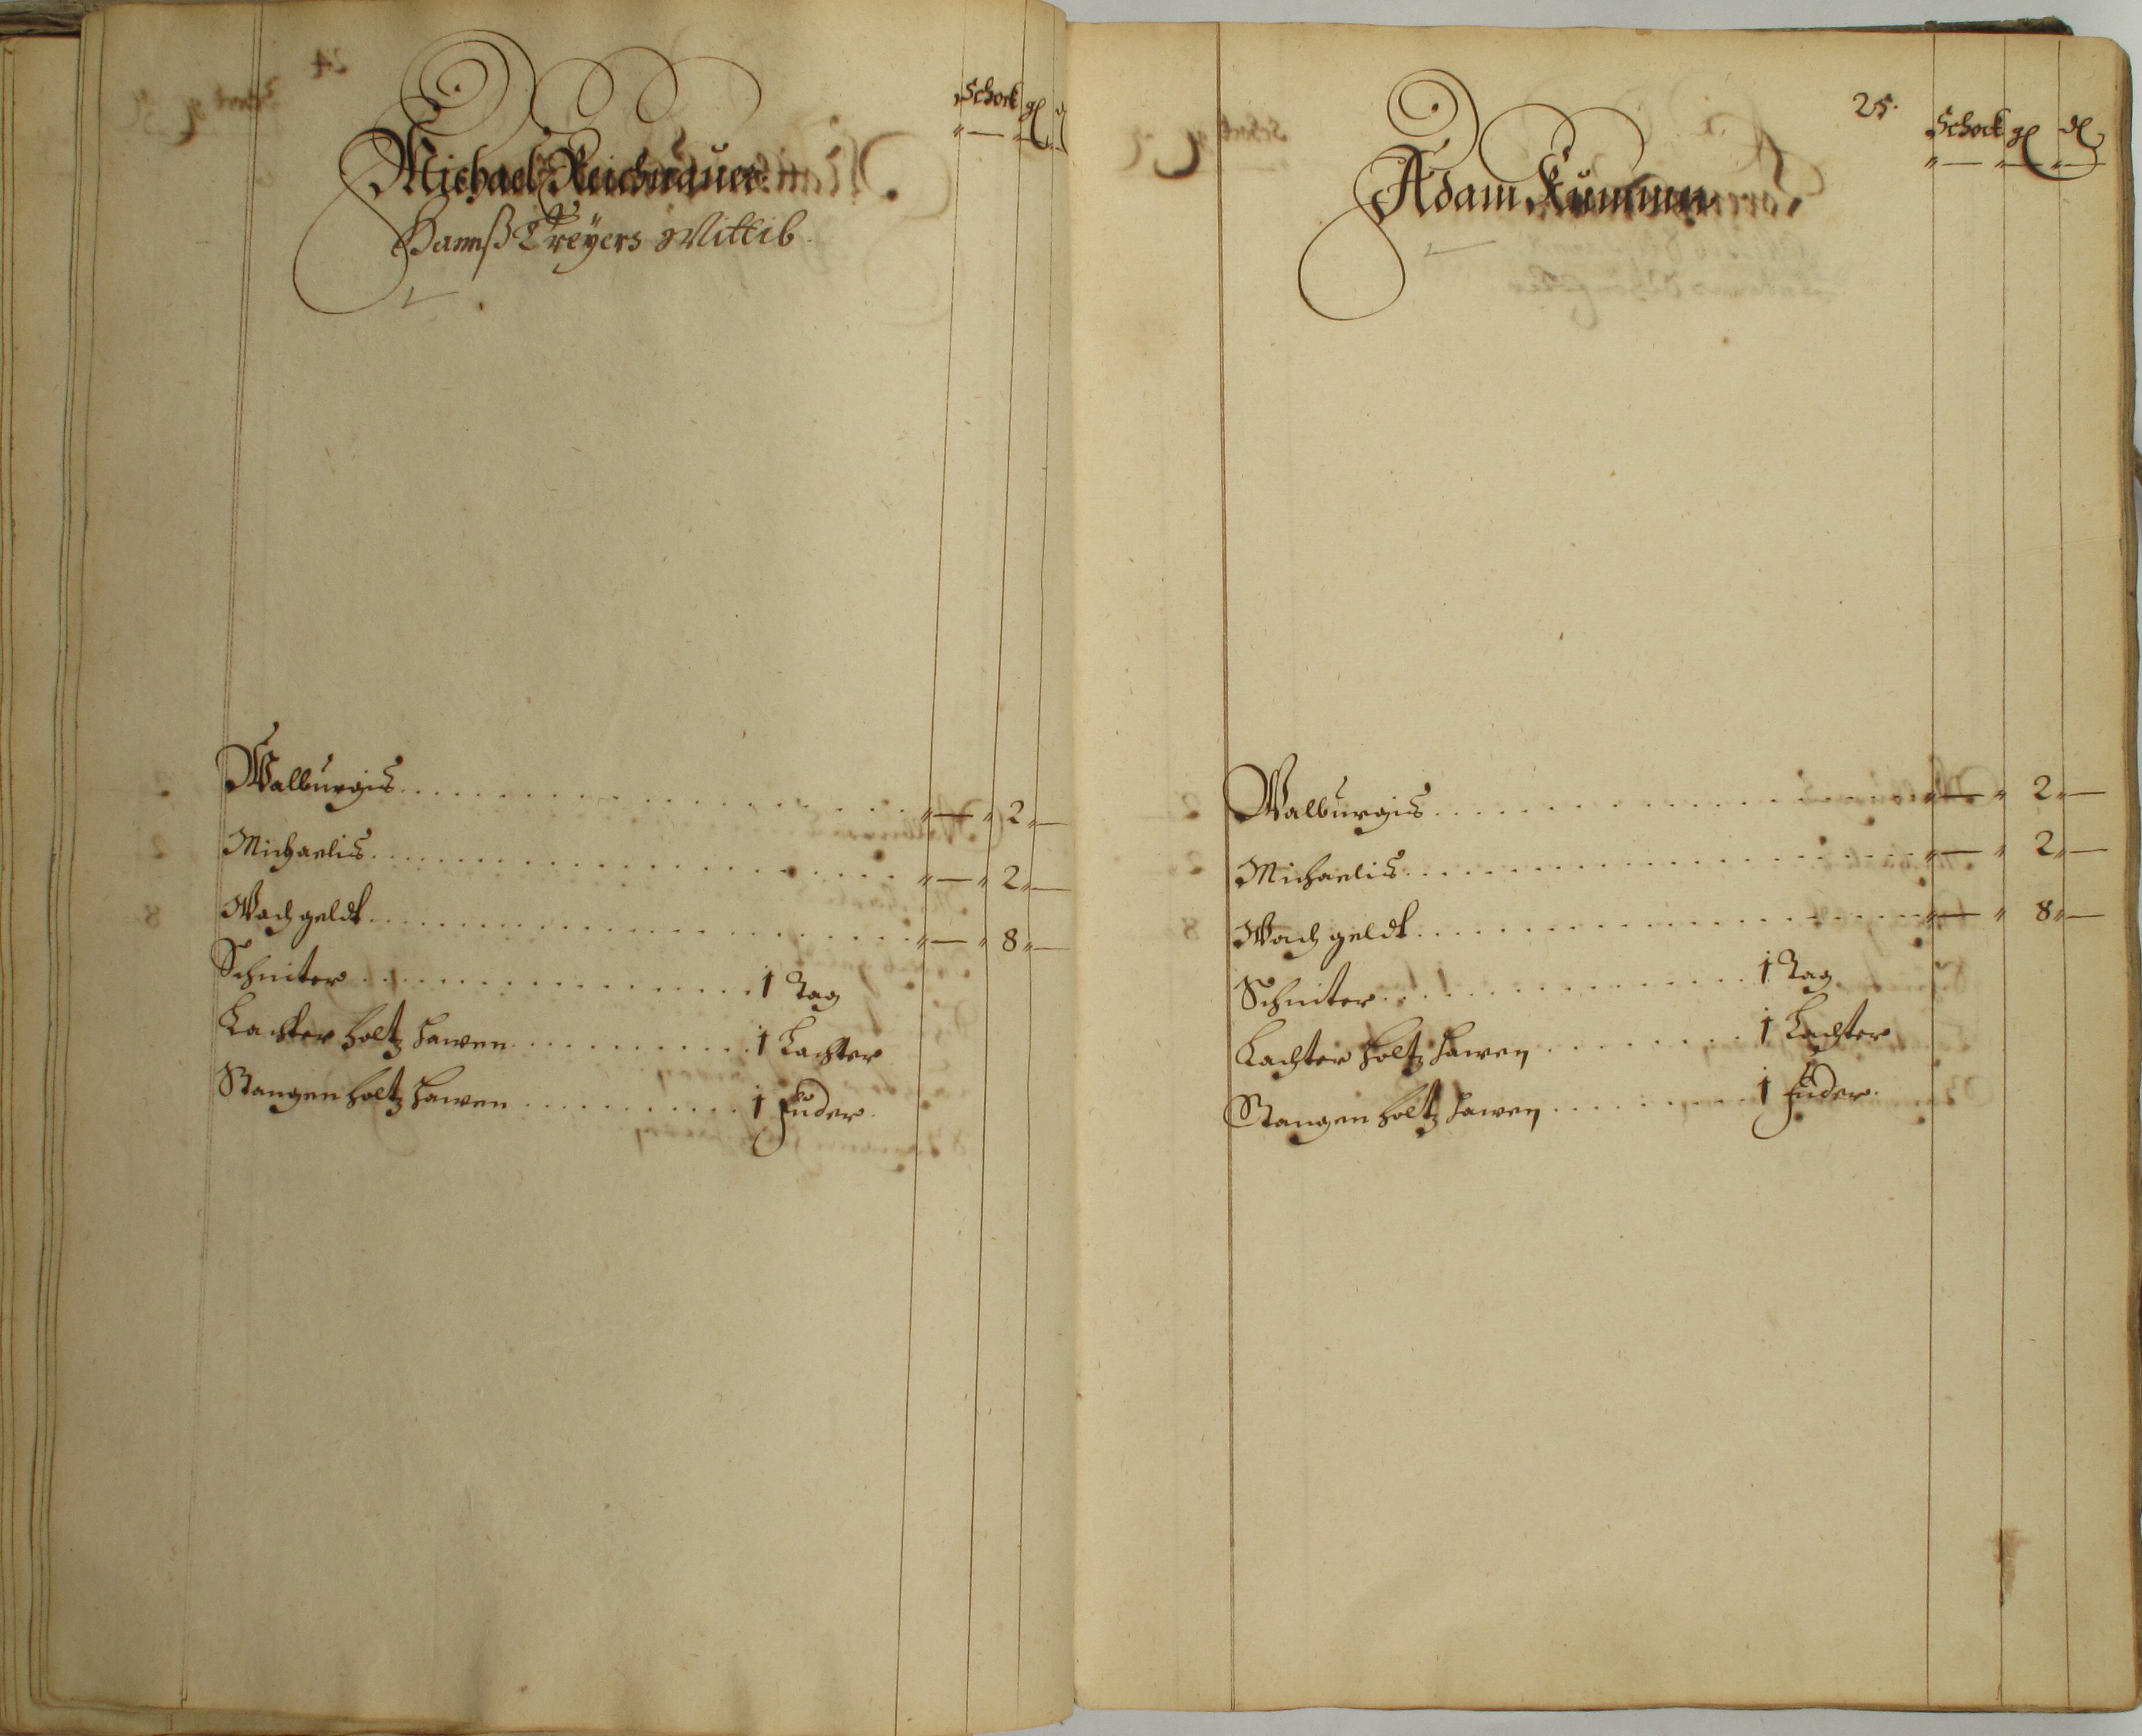 Schock gl
Michael Reichnauer
Hannß Creÿers Wittib
Walburgis . . . . . . . . . . " — " 2 " —
Michaelis . . . . . . . . . . " — " 2 " —
Wach geldt . . . . . . . . . . " — " 8 " —
Schniter . . . . . . . . . . 1 Tag
Lachter holtz hawen . . . . . . . . . . 1 Lachter
Stangen holtz hawen . . . . . . . . . . 1 Fuder.
25.
Schock gl dl
Adam Kummer
Walburgis . . . . . . . . . . " — " 2 " —
Michaelis . . . . . . . . . . " — " 2 " —
Wach geldt . . . . . . . . . . " — " 8 " —
Schniter . . . . . . . . . . 1 Tag
Lachter holtz hawen . . . . . . . . . . 1 Lachter
Stangen holtz hawen . . . . . . . . . . 1 Fuder.